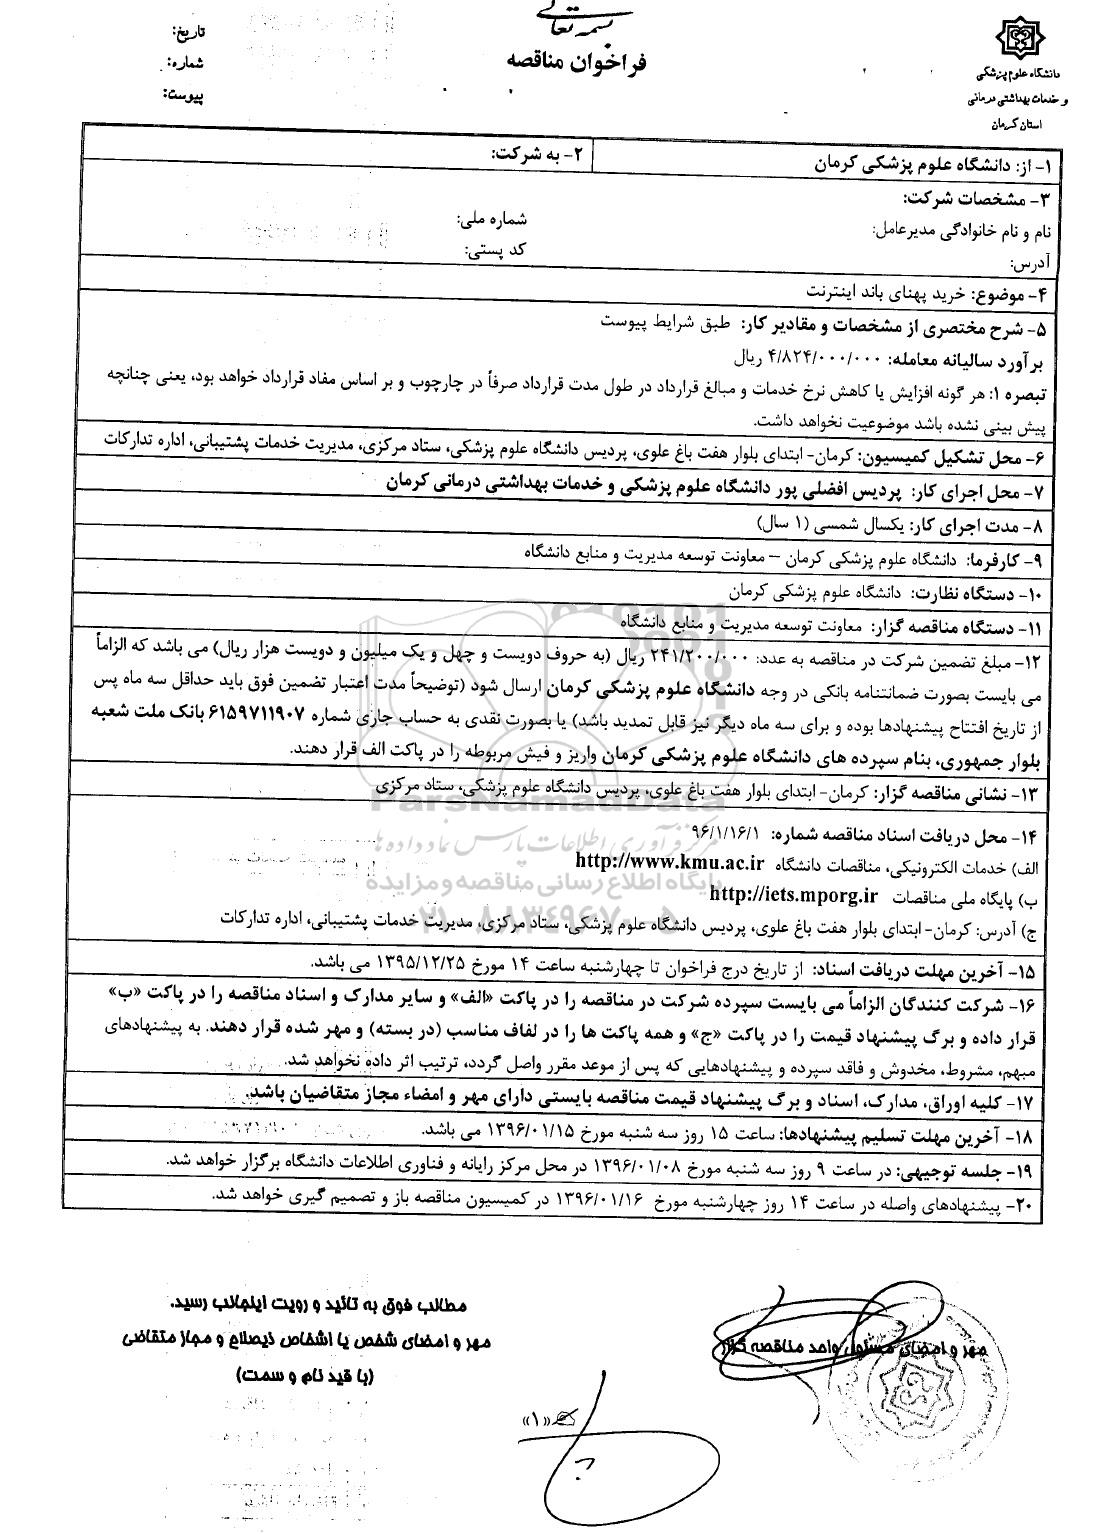 بسمه تعالی
فراخوان مناقصه
تاریخ:
شماره:
پیوست:
دانشگاه علوم پزشکی
و خدمات بهداشتی درمانی
استان کرمان
۱- از: دانشگاه علوم پزشکی کرمان
۲- به شرکت:
۳- مشخصات شرکت:
نام و نام خانوادگی مدیرعامل:
شماره ملی:
آدرس:
کد پستی:
۴- موضوع: خرید پهنای باند اینترنت
۵- شرح مختصری از مشخصات و مقادیر کار: طبق شرایط پیوست
برآورد سالیانه معامله: ۴/۸۲۴/۰۰۰/۰۰۰ ریال
تبصره ۱: هر گونه افزایش یا کاهش نرخ خدمات و مبالغ قرارداد در طول مدت قرارداد صرفاً در چارچوب و بر اساس مفاد قرارداد خواهد بود، یعنی چنانچه
پیش بینی نشده باشد موضوعیت نخواهد داشت.
۶- محل تشکیل کمیسیون: کرمان- ابتدای بلوار هفت باغ علوی، پردیس دانشگاه علوم پزشکی، ستاد مرکزی، مدیریت خدمات پشتیبانی، اداره تدارکات
۷- محل اجرای کار: پردیس افضلی پور دانشگاه علوم پزشکی و خدمات بهداشتی درمانی کرمان
۸- مدت اجرای کار: یکسال شمسی (۱ سال)
۹- کارفرما: دانشگاه علوم پزشکی کرمان – معاونت توسعه مدیریت و منابع دانشگاه
۱۰- دستگاه نظارت: دانشگاه علوم پزشکی کرمان
۱۱- دستگاه مناقصه گزار: معاونت توسعه مدیریت و منابع دانشگاه
۱۲- مبلغ تضمین شرکت در مناقصه به عدد: ۲۴۱/۲۰۰/۰۰۰ ریال (به حروف دویست و چهل و یک میلیون و دویست هزار ریال) می باشد که الزاماً
می بایست بصورت ضمانتنامه بانکی در وجه دانشگاه علوم پزشکی کرمان ارسال شود (توضیحاً مدت اعتبار تضمین فوق باید حداقل سه ماه پس
از تاریخ افتتاح پیشنهادها بوده و برای سه ماه دیگر نیز قابل تمدید باشد) یا بصورت نقدی به حساب جاری شماره ۶۱۵۹۷۱۱۹۰۷ بانک ملت شعبه
بلوار جمهوری، بنام سپرده های دانشگاه علوم پزشکی کرمان واریز و فیش مربوطه را در پاکت الف قرار دهند.
۱۳- نشانی مناقصه گزار: کرمان- ابتدای بلوار هفت باغ علوی، پردیس دانشگاه علوم پزشکی، ستاد مرکزی
ParsNamadData
مرکز فرآوری اطلاعات پارس نماد داده ها
۱۴- محل دریافت اسناد مناقصه شماره: ۹۶/۱/۱۶/۱
الف) خدمات الکترونیکی، مناقصات دانشگاه http://www.kmu.ac.ir
پایگاه اطلاع رسانی مناقصه و مزایده
ب) پایگاه ملی مناقصات http://iets.mporg.ir
۰۲۱-۸۸۳۴۹۶۷۰-۵
ج) آدرس: کرمان- ابتدای بلوار هفت باغ علوی، پردیس دانشگاه علوم پزشکی، ستاد مرکزی، مدیریت خدمات پشتیبانی، اداره تدارکات
۱۵- آخرین مهلت دریافت اسناد: از تاریخ درج فراخوان تا چهارشنبه ساعت ۱۴ مورخ ۱۳۹۵/۱۲/۲۵ می باشد.
۱۶- شرکت کنندگان الزاماً می بایست سپرده شرکت در مناقصه را در پاکت «الف» و سایر مدارک و اسناد مناقصه را در پاکت «ب»
قرار داده و برگ پیشنهاد قیمت را در پاکت «ج» و همه پاکت ها را در لفاف مناسب (در بسته) و مهر شده قرار دهند. به پیشنهادهای
مبهم، مشروط، مخدوش و فاقد سپرده و پیشنهادهایی که پس از موعد مقرر واصل گردد، ترتیب اثر داده نخواهد شد.
۱۷- کلیه اوراق، مدارک، اسناد و برگ پیشنهاد قیمت مناقصه بایستی دارای مهر و امضاء مجاز متقاضیان باشد.
۱۸- آخرین مهلت تسلیم پیشنهادها: ساعت ۱۵ روز سه شنبه مورخ ۱۳۹۶/۰۱/۱۵ می باشد.
۱۹- جلسه توجیهی: در ساعت ۹ روز سه شنبه مورخ ۱۳۹۶/۰۱/۰۸ در محل مرکز رایانه و فناوری اطلاعات دانشگاه برگزار خواهد شد.
۲۰- پیشنهادهای واصله در ساعت ۱۴ روز چهارشنبه مورخ ۱۳۹۶/۰۱/۱۶ در کمیسیون مناقصه باز و تصمیم گیری خواهد شد.
مهر و امضای مسئول واحد مناقصه گزار
مطالب فوق به تائید و رویت اینجانب رسید.
مهر و امضای شخص یا اشخاص ذیصلاح و مجاز متقاضی
(با قید نام و سمت)
«۱»